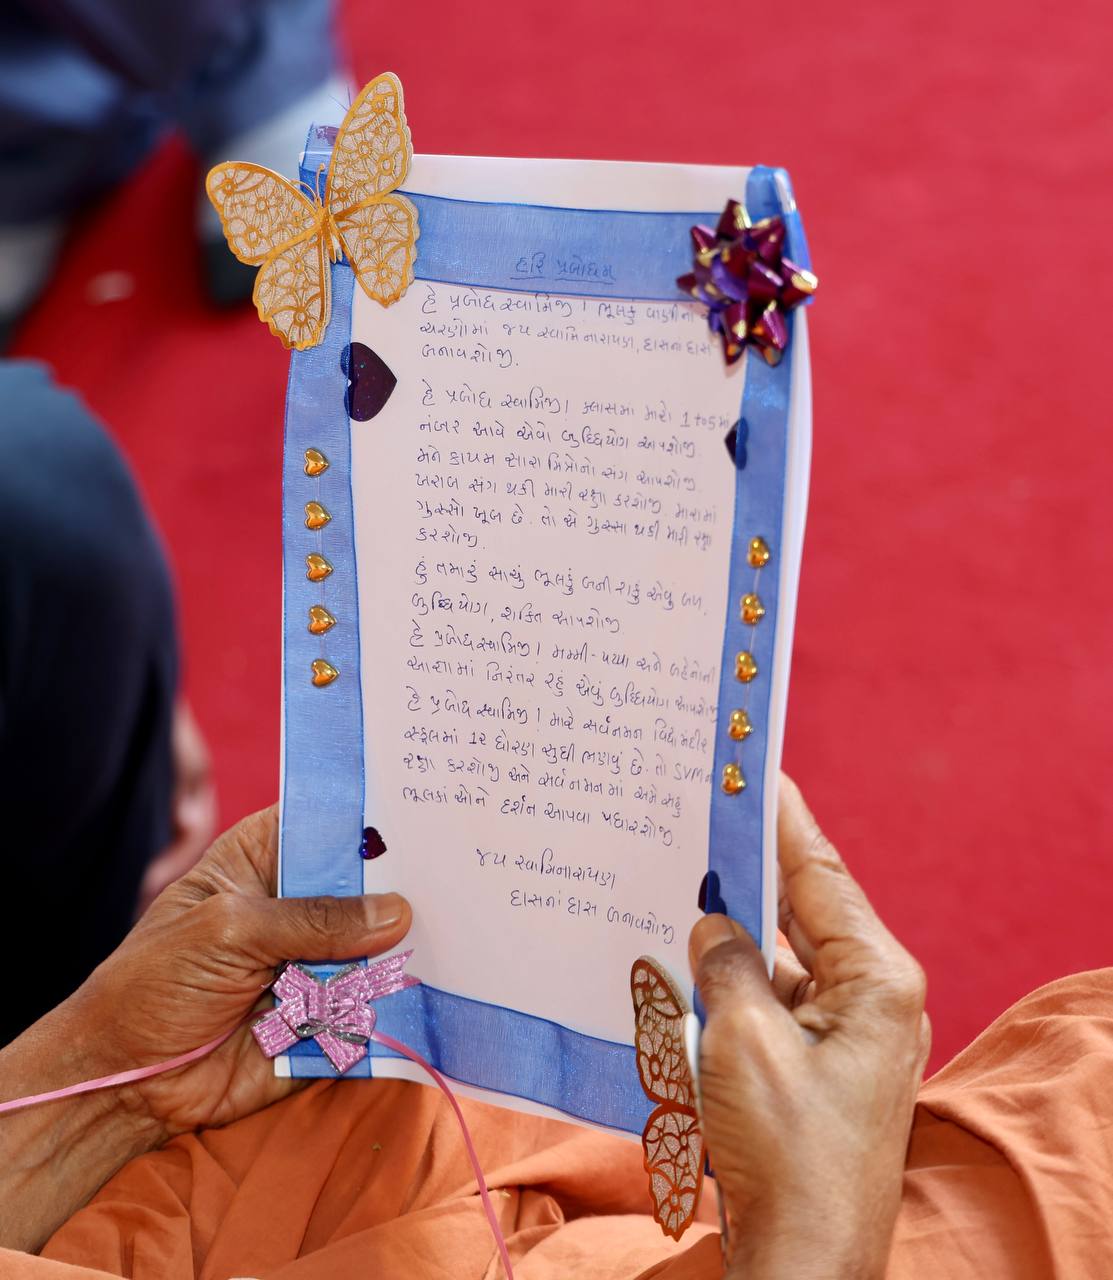 હરિ પ્રબોધમ
હે પ્રબોધ સ્વામિજી ! ભૂલકું વાણીનાં
ચરણોમાં જય સ્વામિનારાયણ, દાસનાં દાસ
બનાવશોજી.
હે પ્રબોધ સ્વામિજી! ક્લાસમાં મારો 1 to 5 માં
નંબર આવે એવો બુધ્ધિયોગ આપશોજી.
મને કાયમ સારા મિત્રોનો સંગ આપશોજી.
ખરાબ સંગ થકી મારી રક્ષા કરશોજી. મારામાં
ગુસ્સો ખૂબ છે. તો એ ગુસ્સા થકી મારી રક્ષા
કરશોજી.
હું તમારું સાચું ભૂલકું બની શકું એવું બળ,
બુધ્ધિયોગ, શક્તિ આપશોજી.
હે પ્રબોધસ્વામિજી! મમ્મી-પપ્પા અને બહેનોની
આજ્ઞામાં નિરંતર રહું એવું બુધ્ધિયોગ આપશોજી
હે પ્રબોધ સ્વામિજી! મારે સર્વનમન વિદ્યામંદીર
સ્કૂલમાં 12 ધોરણ સુધી ભણવું છે. તો SVMની
રક્ષા કરશોજી અને સર્વનમનમાં અમે સહુ
ભૂલકાંઓને દર્શન આપવા પધારશોજી.
જય સ્વામિનારાયણ
દાસનાં દાસ બનાવશોજી.